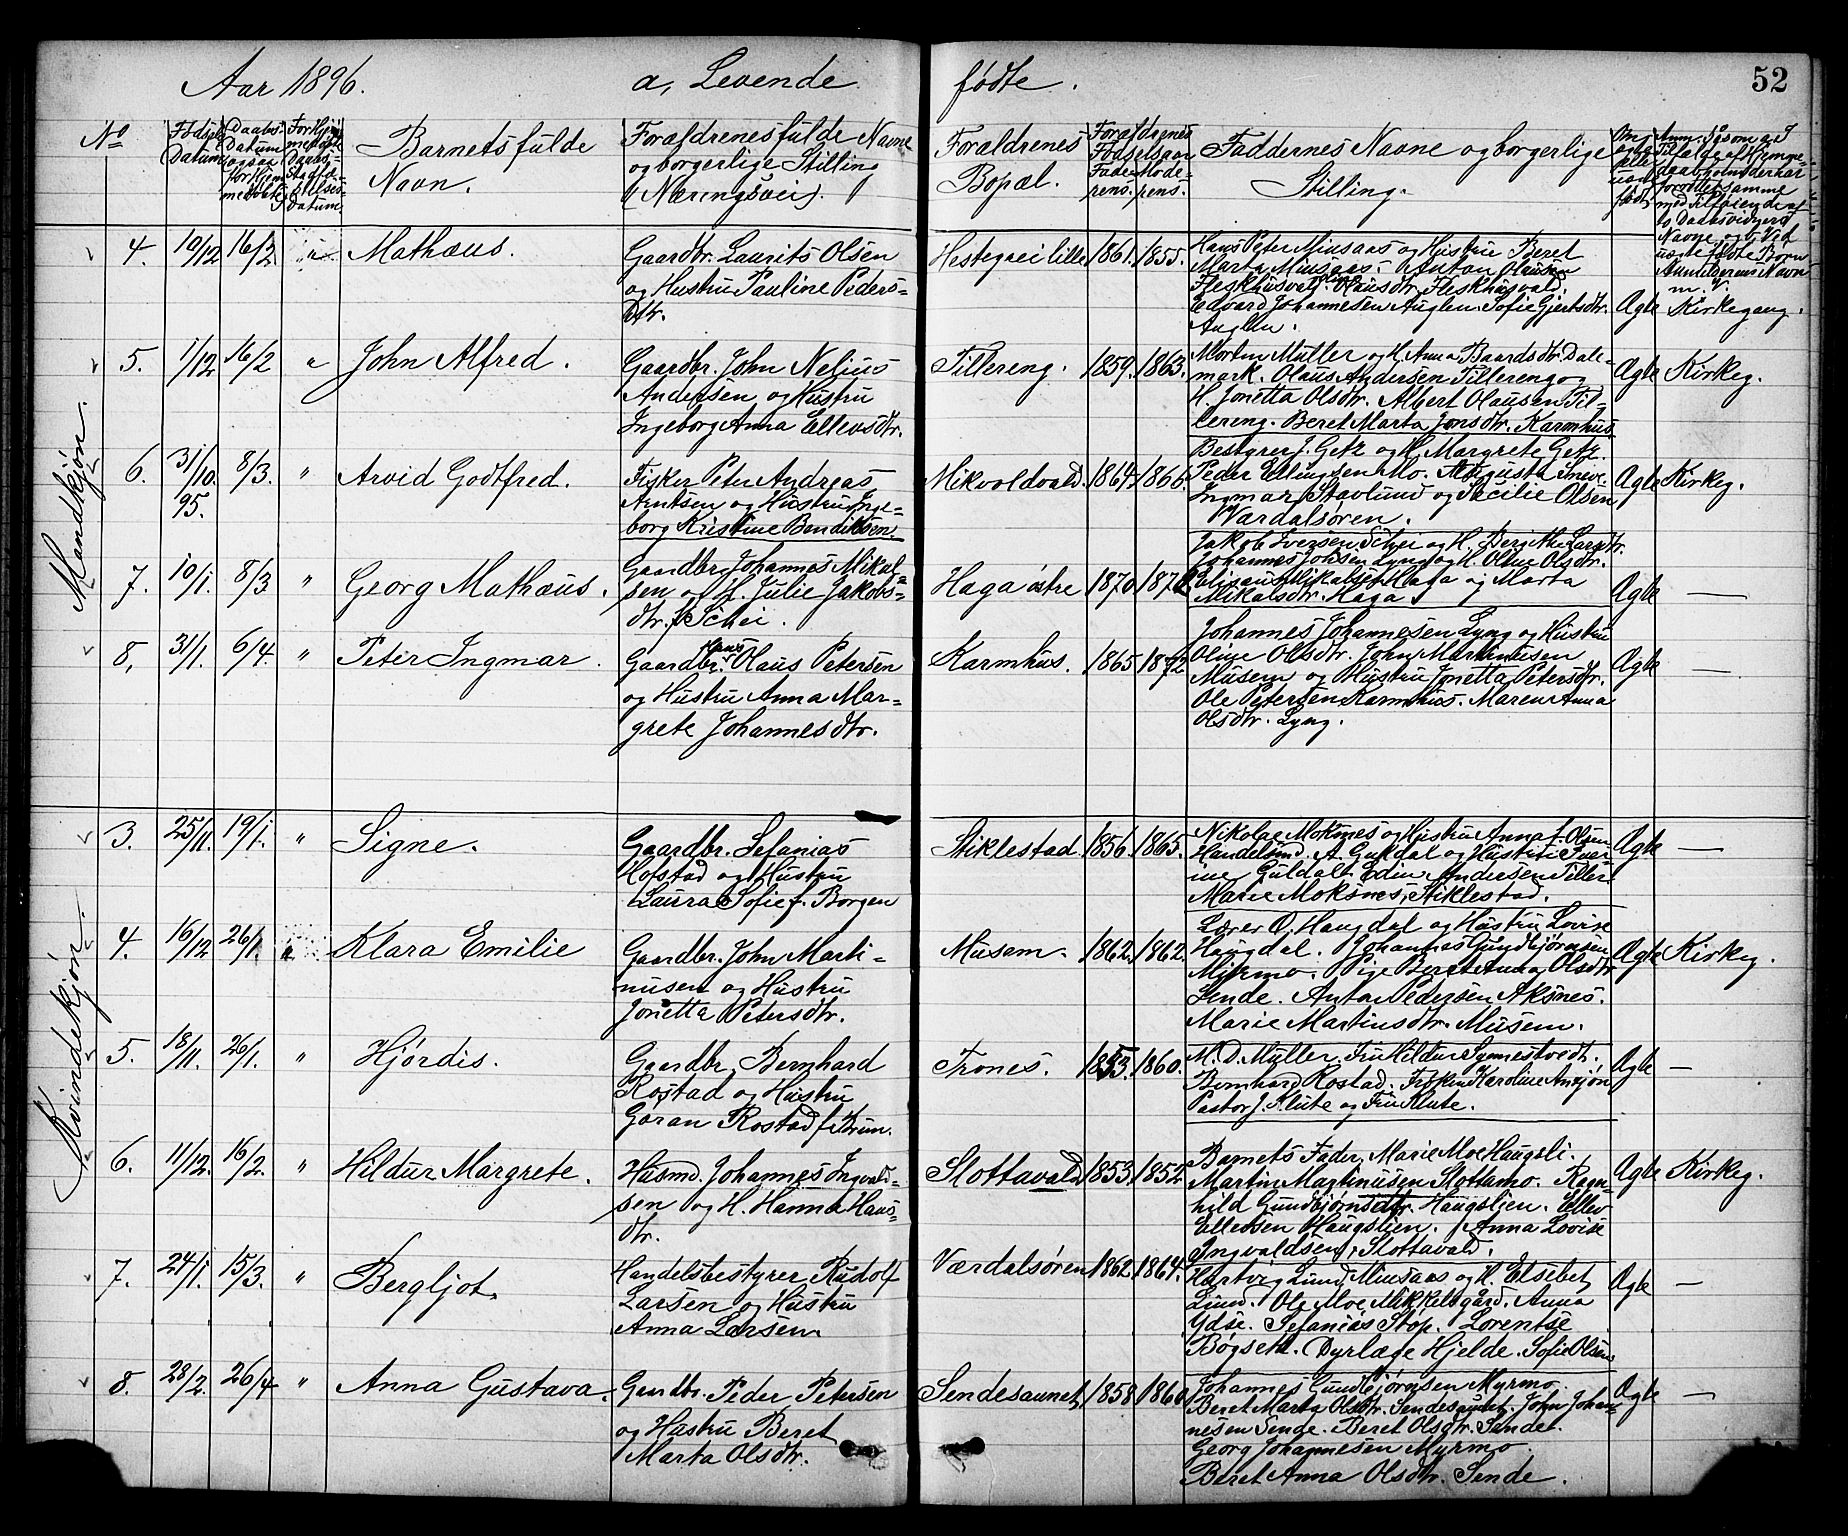 Aar 1896. a, Levende fødte. 52
No
Fødsels Datum
Daabs- Datum
Barnets fulde Navn.
Forældrenes fulde Navne
og borgerlige Stilling
(Næringsvei).
Forældrenes Bopæl.
Forældrenes Fødselsaar
Faderens. Moderens.
Faddernes Navne og borgerlige
Stilling.
Mandkjøn.
4. 19/12 16/2 " Mathæus.
Gaardbr. Laurits Olsen
og Hustru Pauline Peders-
dtr.
Hestegrei lille 1861. 1855.
Hans Peter Minsaas og Hustru Beret
Marta Minsaas. Anton Olausen
Fleskhusvald. Olausdtr. Fleskhusvald.
Edvard Johannesen Auglen. Sofie Gjertsdtr.
Auglen.
Ægte Kirkegang.
5. 1/12 16/2 " John Alfred.
Gaardbr. John Nelius
Andersen og Hustru
Ingeborg Anna Ellevsdtr.
Tillereng. 1859. 1863.
Morten Müller og H. Anna Baardsdtr. Dale-
mark. Olaus Andersen Tillereng og
H. Jonetta Olsdtr. Albert Olausen Til-
lereng. Beret Marta Jonsdtr. Karmhus.
Ægte Kirkeg.
6. 31/10 95. 8/3. " Arvid Godtfred.
Fisker Peter Andreas
Arntsen og Hustru Inge-
borg Kristine Bendiksen.
Mikvoldvald. 1864. 1866.
Bestyrer J. Getz og H. Margrete Getz.
Peder Ellingsen Mo. Augusta
Ingmar Stavlund og Cecilie Olsen
Værdalsøren.
Ægte Kirkeg.
7. 10/1. 8/3 " Georg Mathæus.
Gaardbr. Johannes Mikal-
sen og H. Julie Jakobs-
dtr. f. Schei.
Haga østre 1870
Jakob Iversen Schei og H. Berithe Larsdtr.
Johannes Johsen Lyng og H. Oline Olsdtr.
Elisæus Mikalsen Haga og Marta
Mikalsdtr. Haga.
Ægte —
8. 31/1. 6/4. " Peter Ingmar.
Gaardbr. Hans Olaus Petersen
og Hustru Anna Mar-
grete Johannesdtr.
Karmhus. 1865 1872.
Johannes Johannesen Lyng og Hustru
Oline Olsdtr. John Martinusen
Musem og Hustru Jonetta Petersdtr.
Ole Petersen Karmhus. Maren Anna
Olsdtr. Lyng.
Ægte —
Kvindekjøn.
3. 25/11. 19/1. " Signe.
Gaardbr. Sefanias
Hofstad og Hustru
Laura Sofie f. Borgen
Stiklestad. 1856. 1865.
Nikolae Moksnes og Hustru Anna f. Olsen
Handelsmd. A. Guldal og Hustru
Guldal. Edin Andresen Tiller.
Marie Moksnes, Stiklestad.
Ægte —
4. 16/12 26/1. " Klara Emilie
Gaardbr. John Marti-
nusen og Hustru
Jonetta Petersdtr.
Musem. 1862. 1862.
Lærer O. Haugdal og Hustru Lovise
Haugdal. Johannes Gundbjørnsen
Myrmo. Pige Beret Anna Olsdtr.
Sende. Anton Pedersen Aksnes.
Marie Martinsdtr. Musem.
Ægte Kirkeg.
5. 18/11. 26/1. " Hjørdis.
Gaardbr. Bernhard
Rostad og Hustru
Gøran Rostad f. Brun.
Trones. 1853. 1860.
M. D. Müller. Fru Hildur Synnestvedt.
Bernhard Rostad. Frøken Karoline Ansjøn
Pastor J. Klute og Fru Klute.
Ægte —
6. 11/12. 16/2. " Hildur Margrete.
Husmd. Johannes Ingvald-
sen og H. Hanna Hans-
dtr.
Slottavald 1853. 1852
Barnets Fader, Marie Moe Haugsli.
Martin Martinusen Slottamo. Ragn-
hild Gundbjørnsdtr. Haugslien. Ellev
Ellevsen Haugslien. Anna Lovise
Ingvaldsen, Slottavald.
Ægte Kirkeg.
7. 24/1. 15/3. " Bergljot.
Handelsbestyrer Rudolf
Larsen og Hustru
Anna Larsen.
Værdalsøren 1862. 1864.
Hartvig Lund, Minsaas og H. Elsebet
Lund. Ole Moe Mikkelsgård. Anna
Ydse. Sefanias Stop. Lorentse
Bøgseth. Dyrlæge Hjelde. Sofie Olsen
Ægte —
8. 28/2. 26/4 " Anna Gustava.
Gaardbr. Peder Petersen
og Hustru Beret
Marta Olsdtr.
Sendesaunet 1858 1860
Johannes Gundbjørnsen Myrmo.
Beret Marta Olsdtr. Sendesaunet. John Johan-
nesen Sende. Beret Olsdtr. Sende.
Georg Johannesen Myrmo.
Beret Anna Olsdtr. Sende.
Ægte —